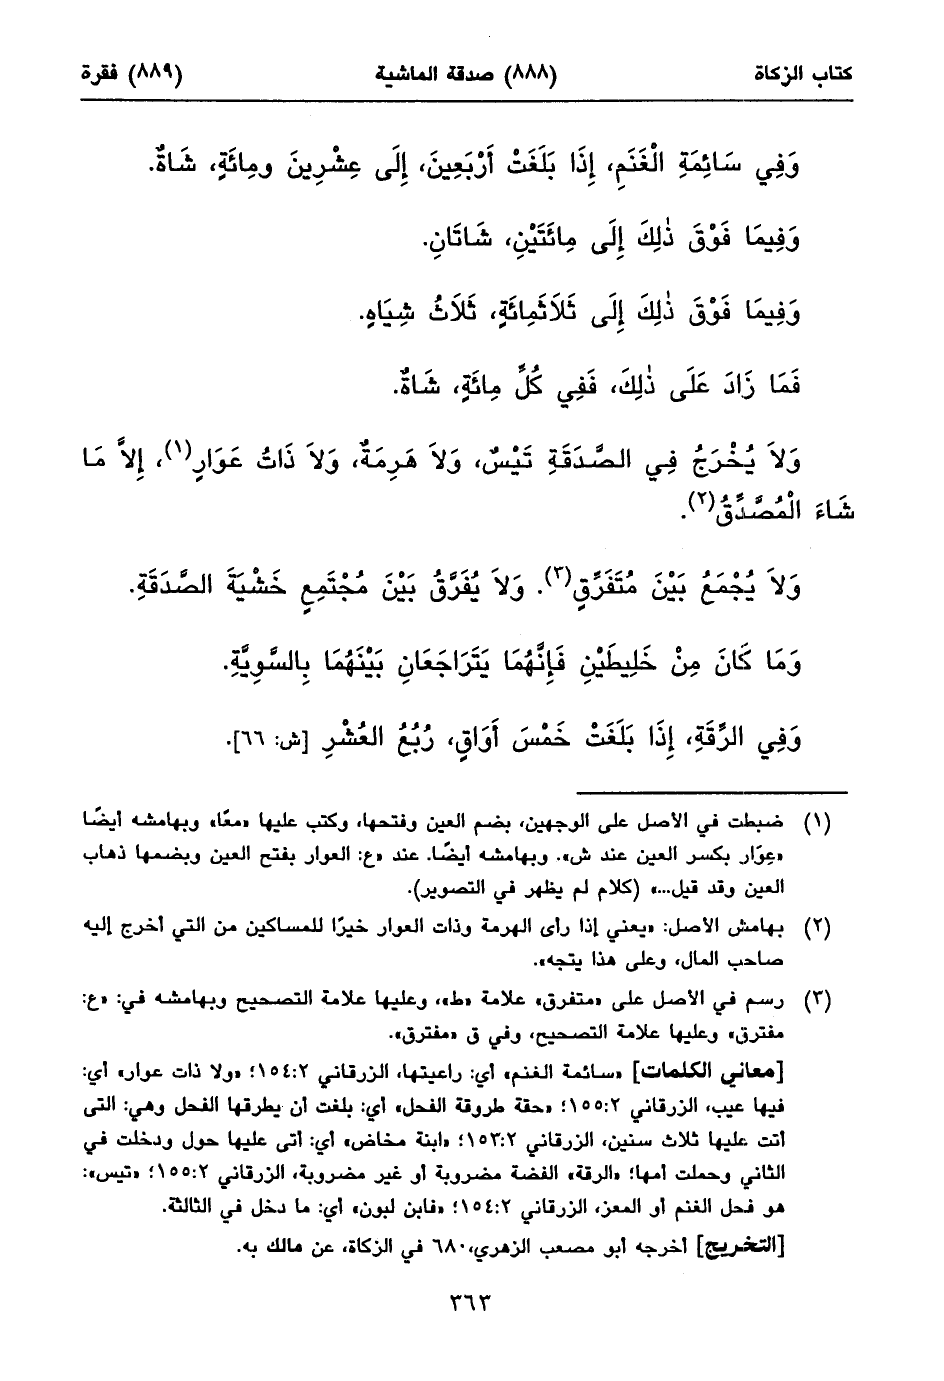 كتاب الزكاة (٨٨٨) صدقة الماشية (٨٨٩) فقرة
وَفِي سَائِمَةِ الْغَنَمِ، إِذَا بَلَغَتْ أَرْبَعِينَ، إِلَى عِشْرِينَ ومِائَةٍ، شَاةٌ.
وَفِيمَا فَوْقَ ذٰلِكَ إِلَى مِائَتَيْنِ، شَاتَانِ.
وَفِيمَا فَوْقَ ذٰلِكَ إِلَى ثَلَاثَمِائَةٍ، ثَلَاثُ شِيَاهٍ.
فَمَا زَادَ عَلَى ذٰلِكَ، فَفِي كُلِّ مِائَةٍ، شَاةٌ.
وَلاَ يُخْرَجُ فِي الصَّدَقَةِ تَيْسٌ، وَلاَ هَرِمَةٌ، وَلاَ ذَاتُ عَوَارٍ(١)، إِلاَّ مَا
شَاءَ الْمُصَّدِّقُ(٢).
وَلاَ يُجْمَعُ بَيْنَ مُتَفَرِّقٍ(٣). وَلاَ يُفَرَّقُ بَيْنَ مُجْتَمِعٍ خَشْيَةَ الصَّدَقَةِ.
وَمَا كَانَ مِنْ خَلِيطَيْنِ فَإِنَّهُمَا يَتَرَاجَعَانِ بَيْنَهُمَا بِالسَّوِيَّةِ.
وَفِي الرِّقَةِ، إِذَا بَلَغَتْ خَمْسَ أَوَاقٍ، رُبُعُ العُشْرِ [ش: ٦٦].
(١) ضبطت في الأصل على الوجهين، بضم العين وفتحها، وكتب عليها «معًا» وبهامشه أيضًا
«عِوَار بكسر العين عند ش». وبهامشه أيضًا. عند «ع: العوار بفتح العين وبضمها ذهاب
العين وقد قيل...» (كلام لم يظهر في التصوير).
(٢) بهامش الأصل: «يعني إذا رأى الهرمة وذات العوار خيرًا للمساكين من التي أخرج إليه
صاحب المال، وعلى هذا يتجه».
(٣) رسم في الأصل على «متفرق» علامة «ط»، وعليها علامة التصحيح وبهامشه في: «ع:
مفترق» وعليها علامة التصحيح، وفي ق «مفترق».
[معاني الكلمات] «سائمة الغنم» أي: راعيتها، الزرقاني ١٥٤:٢؛ «ولا ذات عوار» أي:
فيها عيب، الزرقاني ١٥٥:٢؛ «حقة طروقة الفحل» أي: بلغت أن يطرقها الفحل وهي: التى
أتت عليها ثلاث سنين، الزرقاني ١٥٣:٢؛ «ابنة مخاض» أي: أتى عليها حول ودخلت في
الثاني وحملت أمها؛ «الرقة» الفضة مضروبة أو غير مضروبة، الزرقاني ١٥٥:٢؛ «تيس»:
هو فحل الغنم أو المعز، الزرقاني ١٥٤:٢؛ «فابن لبون» أي: ما دخل في الثالثة.
[التخريج] أخرجه أبو مصعب الزهري، ٦٨٠ في الزكاة، عن مالك به.
٣٦٣